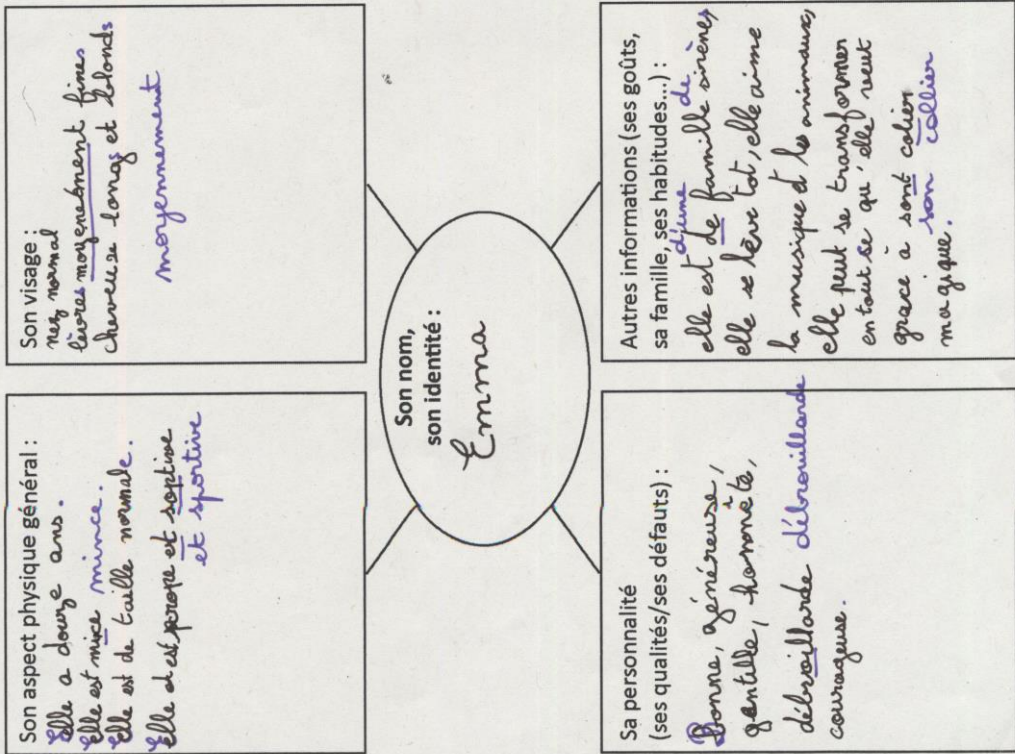 Son aspect physique général :
Elle a douze ans.
Elle est mixe mince.
Elle est de taille normale.
Elle et est propre et soptive
et sportive
Son visage :
nez normal
lèvres moyenément fines
cheveuse longs et blonds
moyennement
Son nom,
son identité :
Emma
Sa personnalité
(ses qualités/ses défauts) :
Bonne, généreuse,
gentille, honnète,
débroillarde débrouillarde
courageuse.
Autres informations (ses goûts,
sa famille, ses habitudes...) :
d'une de
elle est de famille sirènes,
elle se lève tot, elle aime
la musique et les animaux,
elle peut se transformer
en tout se qu'elle veut
grace à sont colier
son collier
magique.